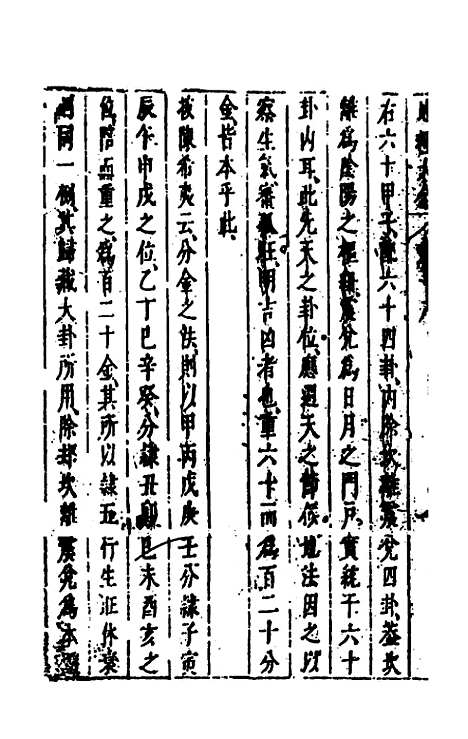 右六十甲子配六十四卦内除坎離震兌四卦蓋坎
離為陰陽之震兌為日月之門戶實統于六十
卦内耳此先天之卦位應週天之節候地法因之以
察生氣審旺明吉凶者也重六十而為百二十分
金皆本乎此
按陳希夷云分金之法則以甲丙戊庚壬分隸子寅
辰午申戌之位乙丁巳辛癸分隸丑卯巳未酉亥之
位陪而重之為百二十金其所以隸五行生旺休衰
同一例其歸藏大卦所用除却坎離震兌為本